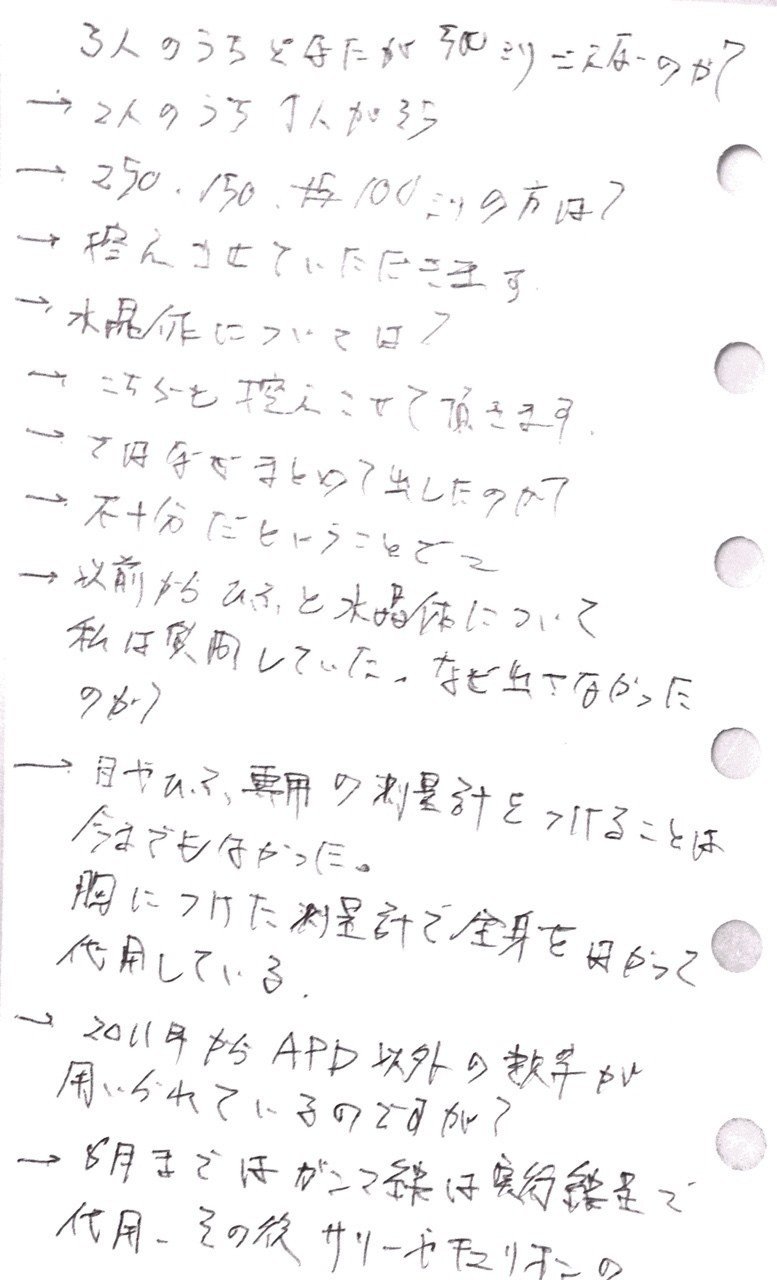 3人のうちどなたが500ミリこえなのか?
→ 2人のうち1人が35
→ 250.150. 100ミリの方は?
→ 控えさせていただきます
→ 水晶体については?
→ こちらも控えさせて頂きます.
→ ではなぜまとめて出したのか?
→ 不十分だということで
→ 以前からひふと水晶体について
私は質問していた。なぜ出さなかった
のか?
→ 目やひふ、専用の測量計をつけることは
今までもなかった。
胸につけた測量計で全身をはかって
代用している.
→ 2011年からAPD以外の数字が
用いられているのですが?
→ 8月まではガンマ線は実行線量で
代用- その後 サリーやキュリオンの